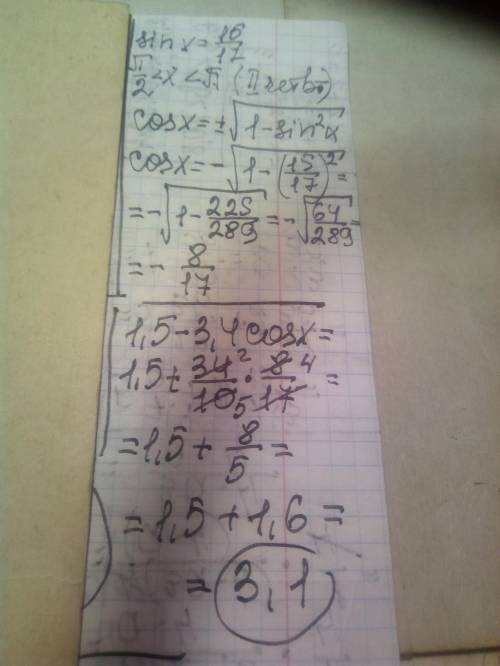 sin x = 16/17
π/2 < x < π (II четв.)
cos x = ±√(1 - sin²x)
cos x = -√(1 - (15/17)²) =
= -√(1 - 225/289) = -√(64/289) =
= - 8/17
1,5 - 3,4 cos x =
1,5 + 34²/10₅ · 8⁴/17 =
= 1,5 + 8/5 =
= 1,5 + 1,6 =
= 3,1